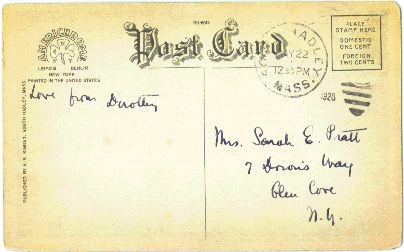 AMERICHROME
LEIPZIG BERLIN
NEW YORK
PRINTED IN THE UNITED STATES
Post Card
PLACE
STAMP HERE
DOMESTIC
ONE CENT
FOREIGN
TWO CENTS
HADLEY
22
12 PM
MASS.
1920
Love from Dorothy
Mrs. Sarah E. Pratt
7 Way
Glen Cove
N.Y.
PUBLISHED BY SOUTH HADLEY, MASS.